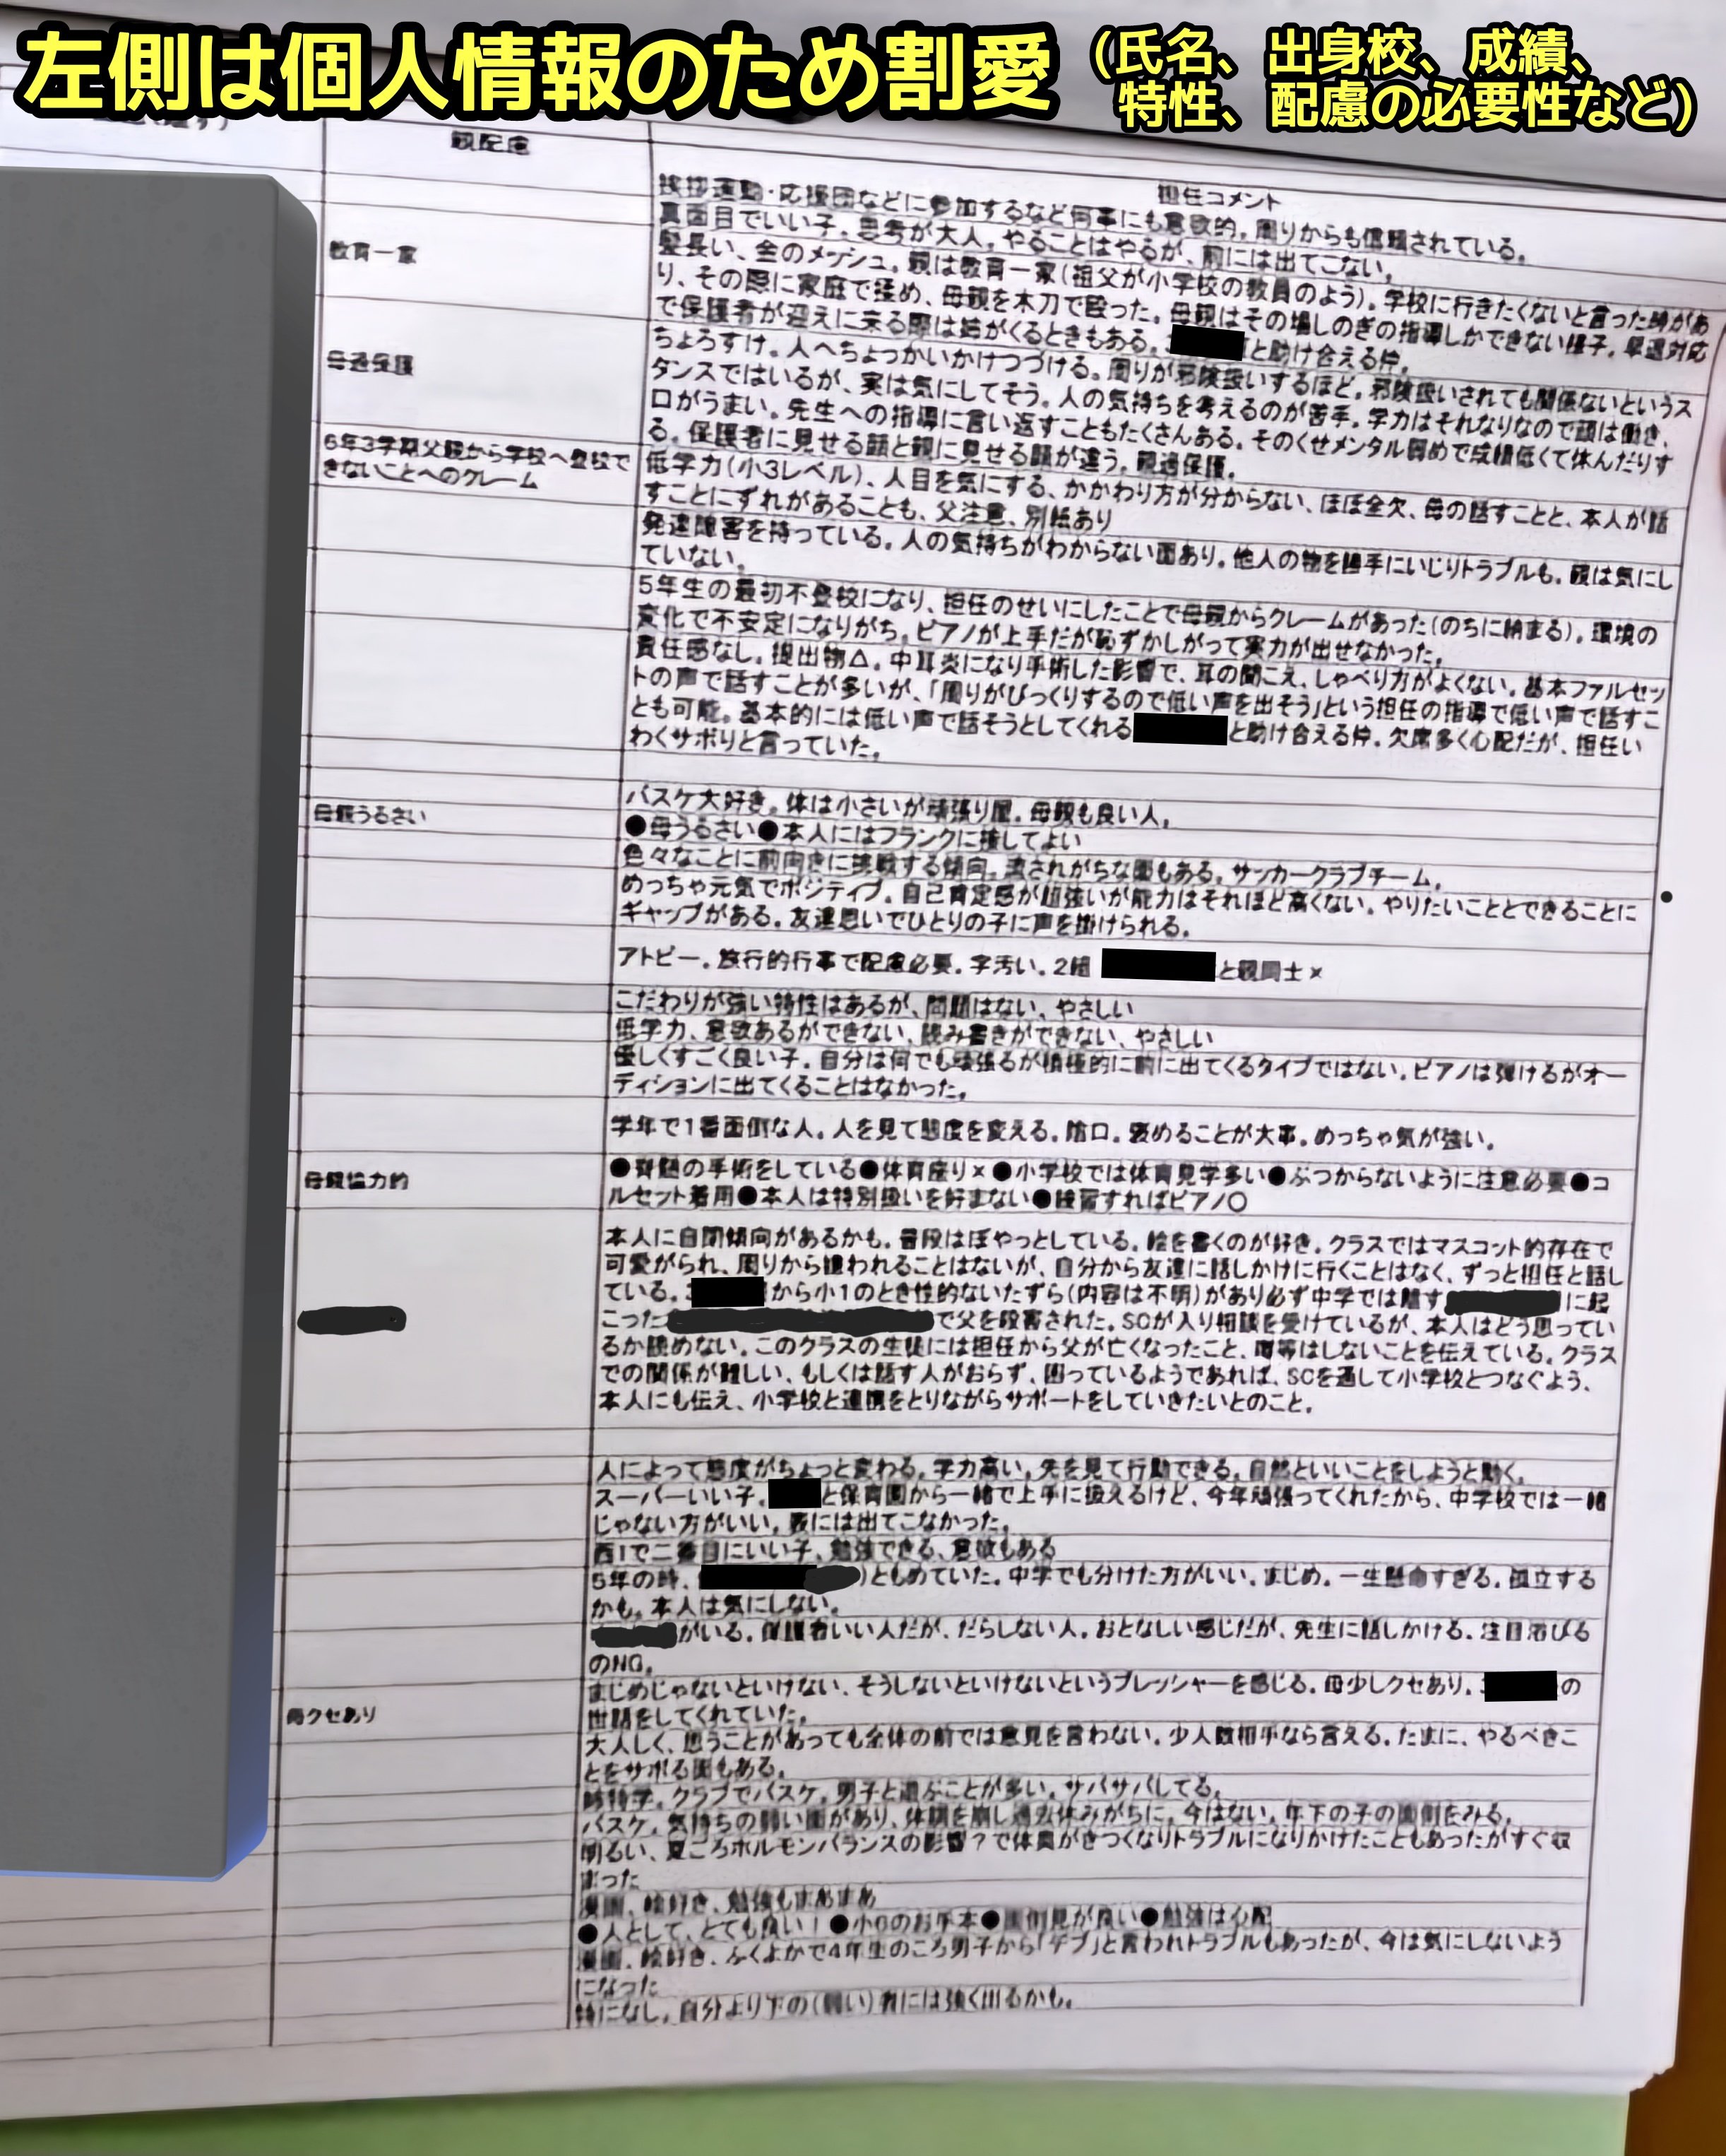 左側は個人情報のため割愛（氏名、出身校、成績、
特性、配慮の必要性など）
親配慮
担任コメント
挨拶運動・応援団などに参加するなど何事にも意欲的。周りからも信頼されている。
真面目でいい子。思考が大人。やることはやるが、前には出てこない。
教育一家
髪長い、金のメッシュ。親は教育一家（祖父が小学校の教員のよう）。学校に行きたくないと言った時があ
り、その際に家庭で揉め、母親を木刀で殴った。母親はその場しのぎの指導しかできない様子。早退対応
で保護者が迎えに来る際は姉がくるときもある。
と助け合える仲。
母過保護
ちょろすけ。人へちょっかいかけつづける。周りが邪険扱いするほど。邪険扱いされても関係ないというス
タンスではいるが、実は気にしてそう。人の気持ちを考えるのが苦手。学力はそれなりなので頭は働き、
口がうまい。先生への指導に言い返すこともたくさんある。そのくせメンタル弱めで成績低くて休んだりす
る。保護者に見せる顔と親に見せる顔が違う。親過保護。
6年3学期父親から学校へ登校で
きないことへのクレーム
低学力（小3レベル）、人目を気にする、かかわり方が分からない、ほぼ全欠、母の話すことと、本人が話
すことにずれがあることも、父注意、別紙あり
発達障害を持っている。人の気持ちがわからない面あり。他人の物を勝手にいじりトラブルも。親は気にし
ていない。
5年生の最初不登校になり、担任のせいにしたことで母親からクレームがあった（のちに納まる）。環境の
変化で不安定になりがち。ピアノが上手だが恥ずかしがって実力が出せなかった。
責任感なし。提出物△。中耳炎になり手術した影響で、耳の聞こえ、しゃべり方がよくない。基本ファルセッ
トの声で話すことが多いが、「周りがびっくりするので低い声を出そう」という担任の指導で低い声で話すこ
とも可能。基本的には低い声で話そうとしてくれる
と助け合える仲。欠席多く心配だが、担任い
わくサボりと言っていた。
バスケ大好き。体は小さいが頑張り屋。母親も良い人。
母親うるさい
●母うるさい●本人にはフランクに接してよい
色々なことに前向きに挑戦する傾向。流されがちな面もある。サッカークラブチーム。
めっちゃ元気でポジティブ。自己肯定感が超強いが能力はそれほど高くない。やりたいこととできることに
ギャップがある。友達思いでひとりの子に声を掛けられる。
アトピー。旅行的行事で配慮必要。字汚い。2組
と親同士×
こだわりが強い特性はあるが、問題はない、やさしい
低学力、意欲あるができない、読み書きができない、やさしい
優しくすごく良い子。自分は何でも頑張るが積極的に前に出てくるタイプではない。ピアノは弾けるがオー
ディションに出てくることはなかった。
学年で1番面倒な人。人を見て態度を変える。陰口。褒めることが大事。めっちゃ気が強い。
母親協力的
●脊髄の手術をしている●体育座り×●小学校では体育見学多い●ぶつからないように注意必要●コ
ルセット着用●本人は特別扱いを好まない●練習すればピアノ〇
本人に自閉傾向があるかも。普段はぼやっとしている。絵を書くのが好き。クラスではマスコット的存在で
可愛がられ、周りから嫌われることはないが、自分から友達に話しかけに行くことはなく、ずっと担任と話し
ている。
から小1のとき性的ないたずら（内容は不明）があり必ず中学では離す
に起
こった
で父を殺害された。SCが入り相談を受けているが、本人はどう思ってい
るか読めない。このクラスの生徒には担任から父が亡くなったこと、噂等はしないことを伝えている。クラス
での関係が難しい、もしくは話す人がおらず、困っているようであれば、SCを通して小学校とつなぐよう、
本人にも伝え、小学校と連携をとりながらサポートをしていきたいとのこと。
人によって態度がちょっと変わる。学力高い。先を見て行動できる。自然といいことをしようと動く。
スーパーいい子。
と保育園から一緒で上手に扱えるけど、今年頑張ってくれたから、中学校では一緒
じゃない方がいい。表には出てこなかった。
西1で二番目にいい子、勉強できる、意欲もある
5年の時、
）ともめていた。中学でも分けた方がいい。まじめ。一生懸命すぎる。孤立する
かも。本人は気にしない。
がいる。保護者いい人だが、だらしない人。おとなしい感じだが、先生に話しかける。注目浴びる
のNG。
母クセあり
まじめじゃないといけない、そうしないといけないというプレッシャーを感じる。母少しクセあり。
の
世話をしてくれていた。
大人しく、思うことがあっても全体の前では意見を言わない。少人数相手なら言える。たまに、やるべきこ
とをサボる面もある。
姉特学。クラブでバスケ。男子と遊ぶことが多い。サバサバしてる。
バスケ。気持ちの弱い面があり、体調を崩し過去休みがちに。今はない。年下の子の面倒をみる。
明るい、夏ごろホルモンバランスの影響？で体臭がきつくなりトラブルになりかけたこともあったがすぐ収
まった
漫画、絵好き、勉強もまあまあ
●人として、とても良い！●小6のお手本●面倒見が良い●勉強は心配
漫画、絵好き、ふくよかで4年生のころ男子から「デブ」と言われトラブルもあったが、今は気にしないよう
になった
特になし。自分より下の（弱い）者には強く出るかも。